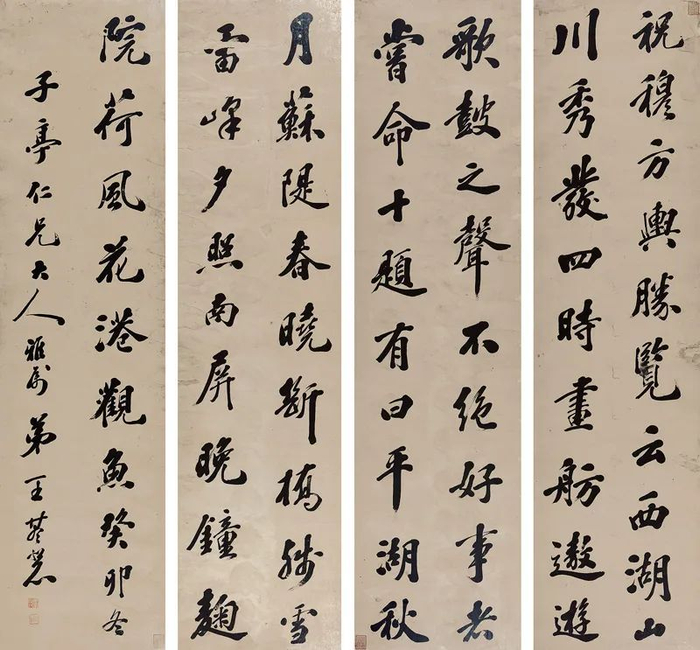 祝穆方輿勝覽云西湖山
川秀發四時畫舫遨遊
歌鼓之聲不絕好事者
嘗命十題有曰平湖秋
月蘇隄春曉斷橋殘雪
雷峰夕照南屏晚鐘麴
院荷風花港觀魚癸卯冬
子亭仁兄大人雅屬弟王